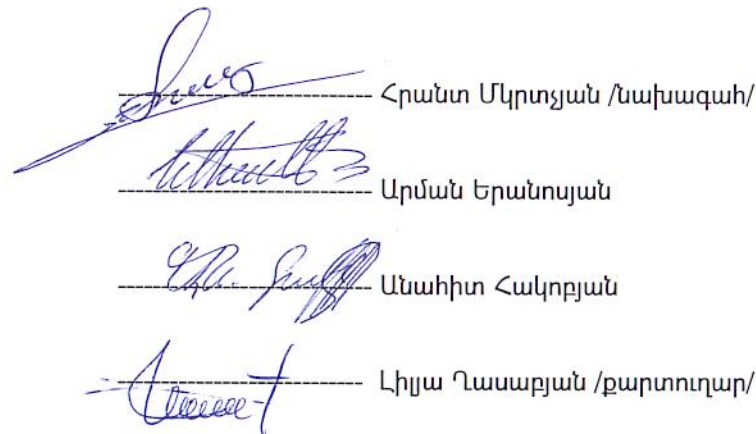 Հրանտ Մկրտչյան /նախագահ/
Արման Երանոսյան
Անահիտ Հակոբյան
Լիլյա Ղասաբյան /քարտուղար/